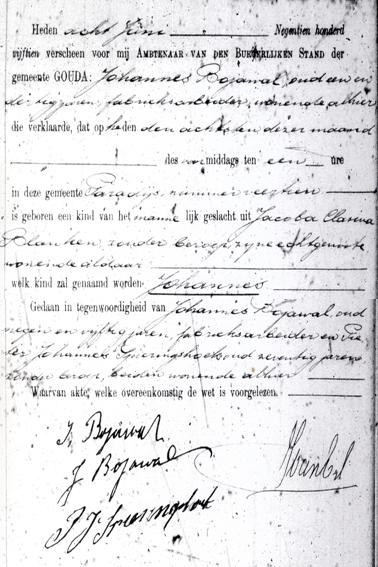 Heden acht Juni Negentien honderd
vijftien verscheen voor mij AMBTENAAR VAN DEN BURGERLIJKEN STAND der
gemeente GOUDA: Johannes Bojawal, oud een en
dertig jaren, fabrieksarbeider, wonende alhier
die verklaarde, dat op heden den achtsten dezer maand
des voormiddags ten een ure
in deze gemeente Paradijs, nummer veertien
is geboren een kind van het mannelijk geslacht uit Jacoba Clasina
Planken, zonder beroep, zijne echtgenoote
wonende aldaar
welk kind zal genaamd worden Johannes
Gedaan in tegenwoordigheid van Johannes Bojawal, oud
negen en vijftig jaren, fabrieksarbeider en Pie
ter Johannes Speringhoek oud zeventig jaren
zonder beroep, beiden wonende alhier
Waarvan akte, welke overeenkomstig de wet is voorgelezen.
J. Bojawal
J Bojawal
P J